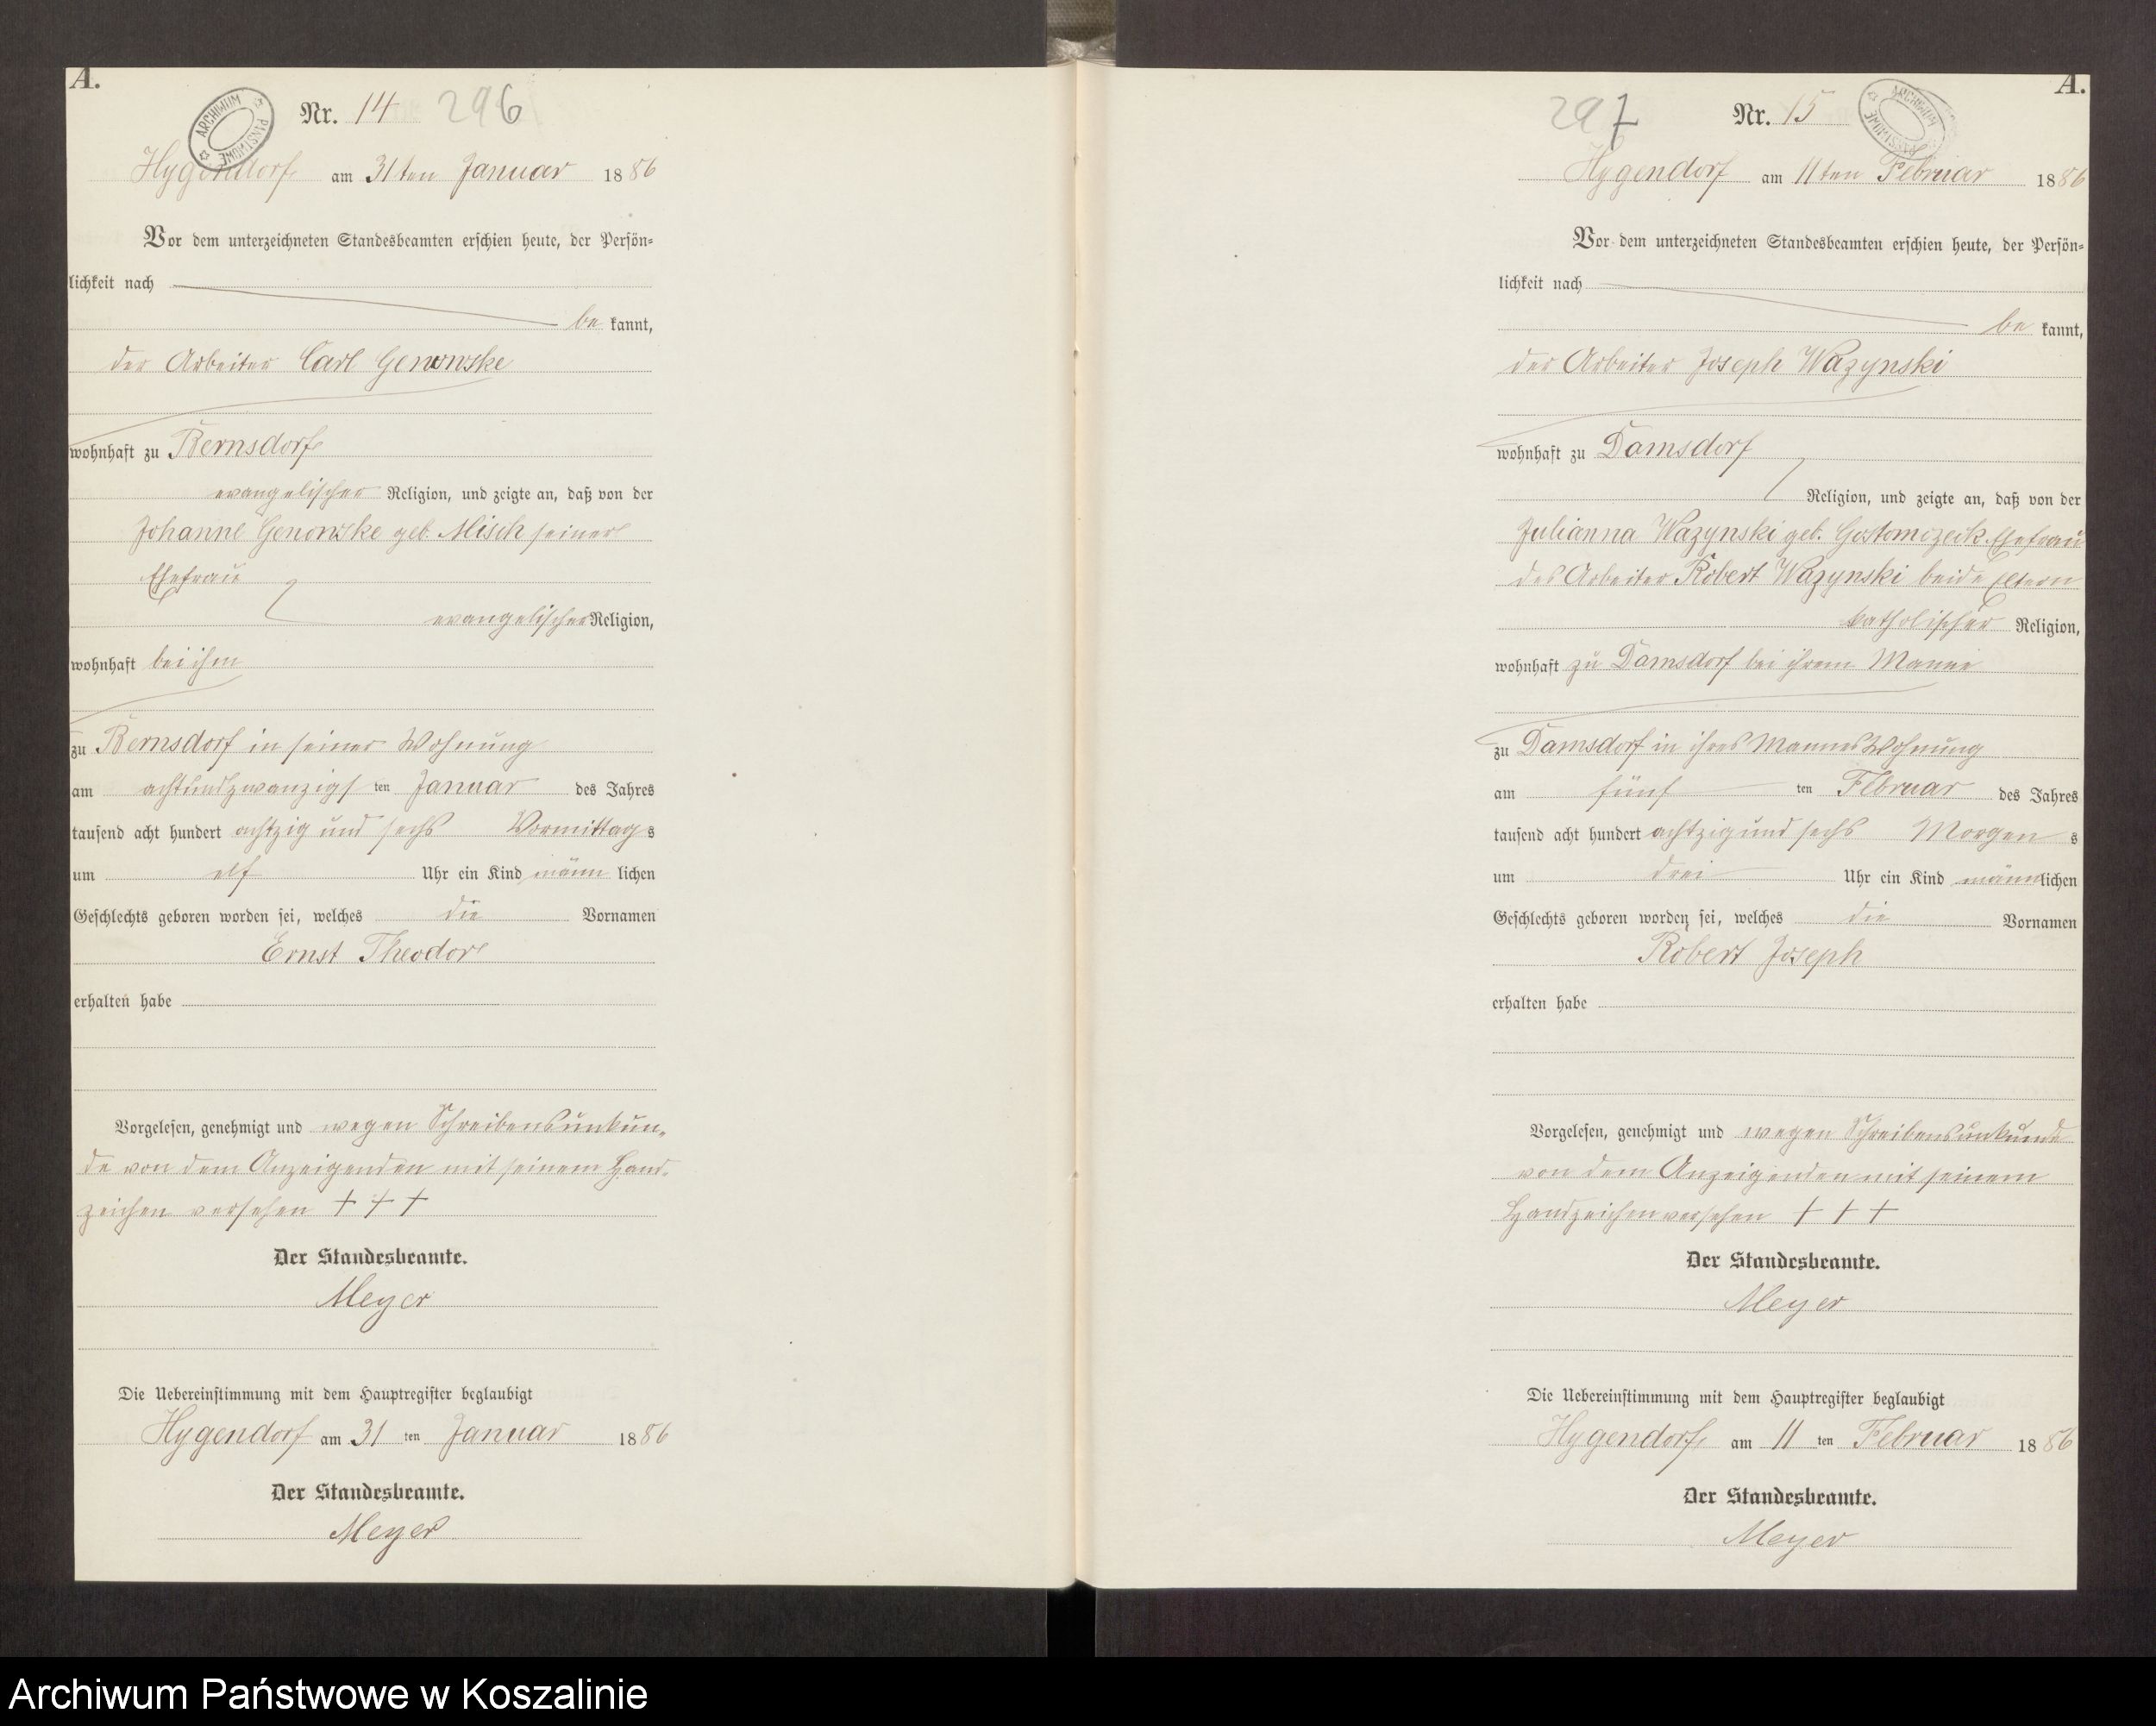 A.
ARCHIWUM PAŃSTWOWE
Nr. 14 296
Hygendorf am 31ten Januar 1886
Vor dem unterzeichneten Standesbeamten erschien heute, der Persön=
lichkeit nach
be kannt,
der Arbeiter Carl Genowske
wohnhaft zu Bernsdorf
evangelischer Religion, und zeigte an, daß von der
Johanne Genowske geb. Misch seiner
Ehefrau
evangelischer Religion,
wohnhaft bei ihm
zu Bernsdorf in seiner Wohnung
am achtundzwanzigs ten Januar des Jahres
tausend acht hundert achtzig und sechs Vormittag s
um elf Uhr ein Kind männ lichen
Geschlechts geboren worden sei, welches die Vornamen
Ernst Theodor
erhalten habe
Vorgelesen, genehmigt und wegen Schreibensunkun=
de von dem Anzeigenden mit seinem Hand=
zeichen versehen + + +
Der Standesbeamte.
Meyer
Die Uebereinstimmung mit dem Hauptregister beglaubigt
Hygendorf am 31 ten Januar 1886
Der Standesbeamte.
Meyer
A.
297 Nr. 15
ARCHIWUM PAŃSTWOWE
Hygendorf am 11ten Februar 1886
Vor dem unterzeichneten Standesbeamten erschien heute, der Persön=
lichkeit nach
be kannt,
der Arbeiter Joseph Wazynski
wohnhaft zu Damsdorf
Religion, und zeigte an, daß von der
Julianna Wazynski geb. Ehefrau
des Arbeiter Robert Wazynski beide Eltern
katholischer Religion,
wohnhaft zu Damsdorf bei ihrem Manne
zu Damsdorf in ihres Mannes Wohnung
am fünf ten Februar des Jahres
tausend acht hundert achtzig und sechs Morgen s
um drei Uhr ein Kind männlichen
Geschlechts geboren worden sei, welches die Vornamen
Robert Joseph
erhalten habe
Vorgelesen, genehmigt und wegen Schreibensunkunde
von dem Anzeigenden mit seinem
Handzeichen versehen + + +
Der Standesbeamte.
Meyer
Die Uebereinstimmung mit dem Hauptregister beglaubigt
Hygendorf am 11 ten Februar 1886
Der Standesbeamte.
Meyer
Archiwum Państwowe w Koszalinie